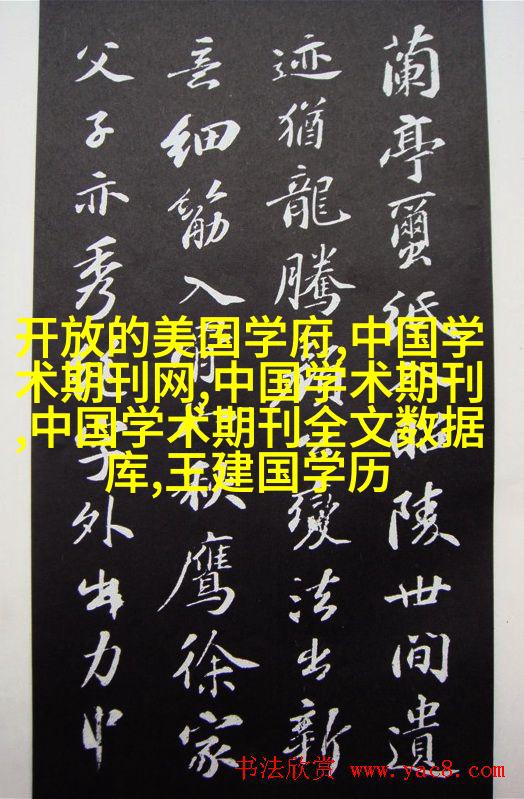 蘭亭蠒紙入昭陵世間遺
迹猶龍騰顏公變法出新
意細筋入骨如秋鷹徐家
父子亦秀絕字外出力中
开放的美国学府,中国学
术期刊网,中国学术期刊
,中国学术期刊全文数据
库,王建国学历
书法欣赏 www.yac8.com